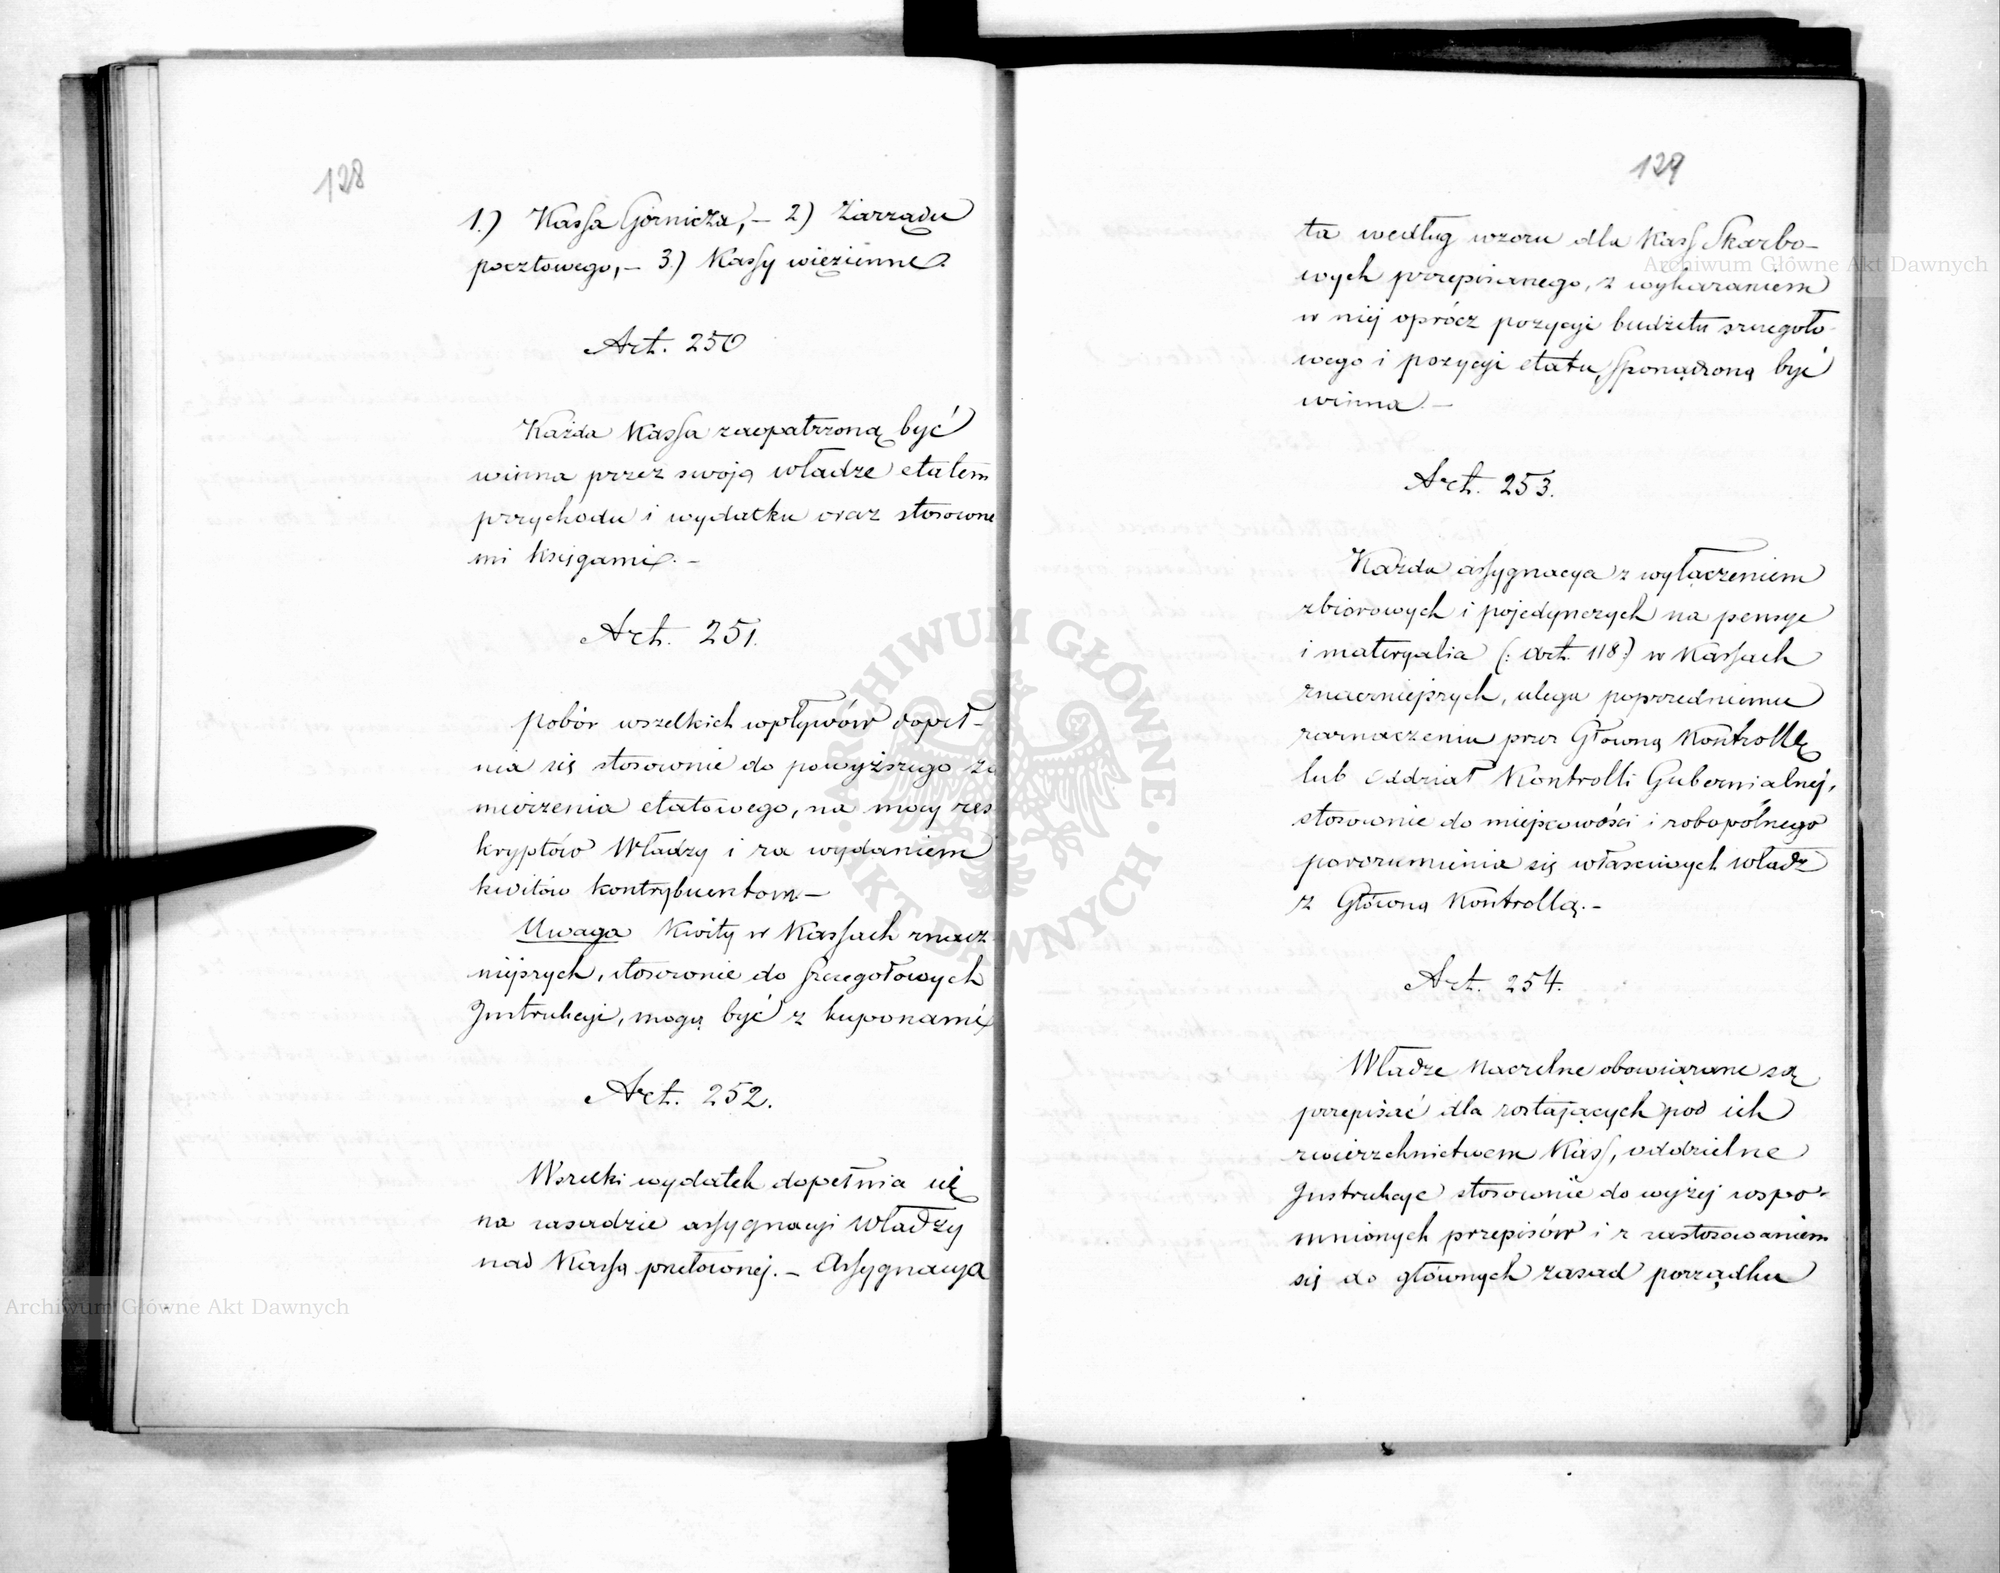 128
1.) Kassa Górnicza, – 2) Zarządu
pocztowego, – 3.) Kassy więzienne.
Art. 250
Każda Kassa zaopatrzoną być
winna przez swoją władzę etatem
przychodu i wydatku oraz stosowne
mi księgami. –
Art. 251.
Pobór wszelkich wpływów dopeł–
nia się stosownie do powyższego za
mierzenia etatowego, na mocy res
kryptów Władzy i za wydaniem
kwitów kontrybuentom –
Uwaga Kwity w Kassach znacz
niejszych, stosownie do szczegołowych
Instrukcyi, mogą być z kuponami
Art. 252.
Wszelki wydatek dopełnia się
na zasadzie assygnacyi Władzy
nad Kassą przełożonej. – Assygnacya
129
ta według wzoru dla Kass Skarbo–
wych przepisanego, z wykazaniem
w niej oprócz pozycyi budżetu szczegoło–
wego i pozycyi etatu, sporządzoną być
winna. –
Art. 253.
Każda assygnacya z wyłączeniem
zbiorowych i pojedynczych na pensye
i materyalia (: Art. 118 :) w Kassach
znaczniejszych, ulega poprzedniemu
zaznaczeniu przez Główną Kontrollę
lub Oddział Kontrolli Gubernialnej,
stosownie do miejscowości i zobopólnego
porozumienia się właściwych władz
z Główną Kontrollą. –
Art. 254.
Władze Naczelne obowiązane są
przepisać dla zostających pod ich
zwierzchnictwem Kass, oddzielne
Instrukcye stosownie do wyżej wspo–
mnionych przepisów i z zastosowaniem
się do głównych zasad porządku
ARCHIWUM GŁÓWNE · AKT DAWNYCH ·
Archiwum Główne Akt Dawnych
Archiwum Główne Akt Dawnych